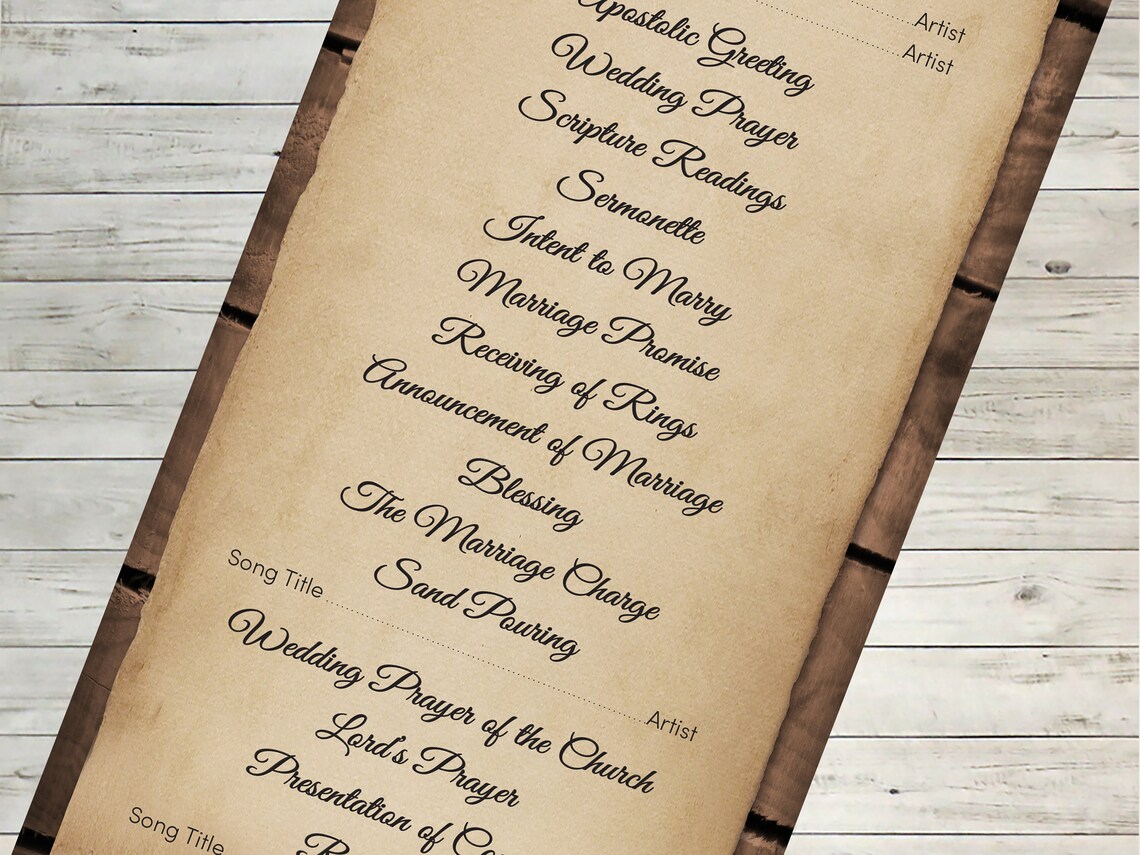 Artist
Artist
Apostolic Greeting
Wedding Prayer
Scripture Readings
Sermonette
Intent to Marry
Marriage Promise
Receiving of Rings
Announcement of Marriage
Blessing
The Marriage Charge
Sand Pouring
Song Title Artist
Wedding Prayer of the Church
Lord's Prayer
Presentation of
Song Title